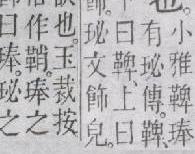 也。小雅鞞琫
有珌。傳鞞
鞞上曰
飾。珌文飾皃。
也。玉裁按
作鞘。琫之
曰琫。珌之